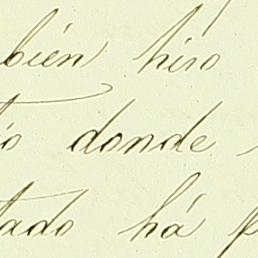 bién hiso
to donde
tado há